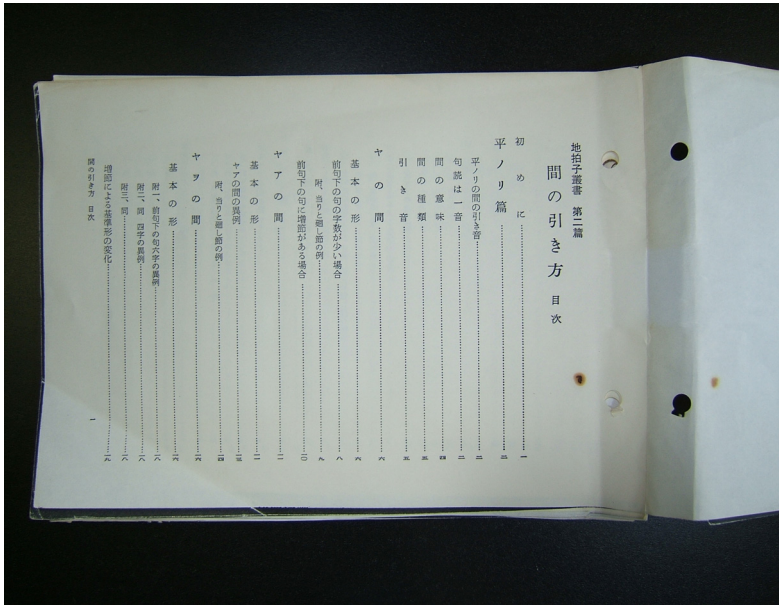 地拍子叢書 第二篇
間の引き方 目次
初めに 一
平ノリ篇 二
平ノリの間の引き音 二
句読は一音 三
間の意味 四
間の種類 五
引き音 五
ヤの間 六
基本の形 六
前句下の句の字数が少い場合 八
附、当りと廻し節の例 九
前句下の句に増節がある場合 一〇
ヤアの間 一一
基本の形 一一
ヤアの間の異例 一三
附、当りと廻し節の例 一四
ヤヲの間 一六
基本の形 一六
附一、前句下の句六字の異例 一八
附二、同 四字の異例 一八
附三、同 一八
増節による基準形の変化 一九
間の引き方 目次 一